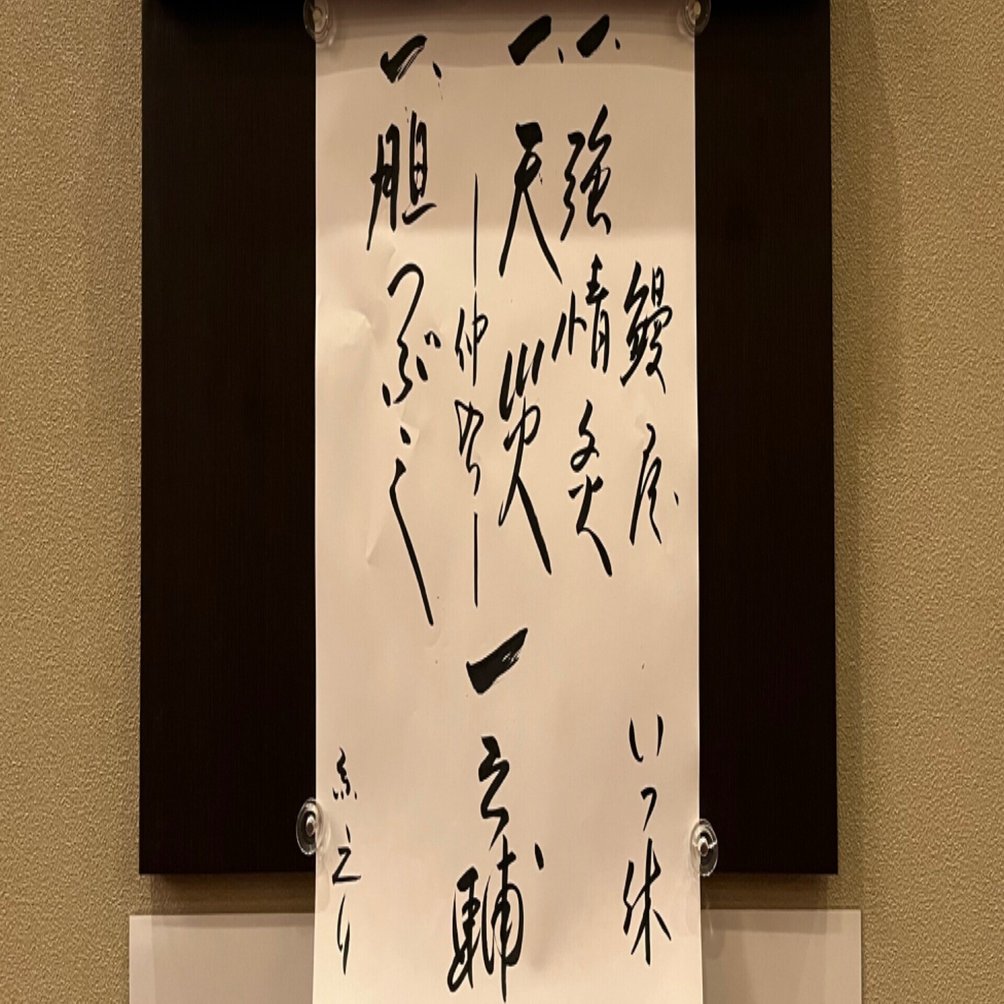 鰻屋 いっ休
一、強情灸
一、天災
一之輔
一、胆つぶし
糸 えり